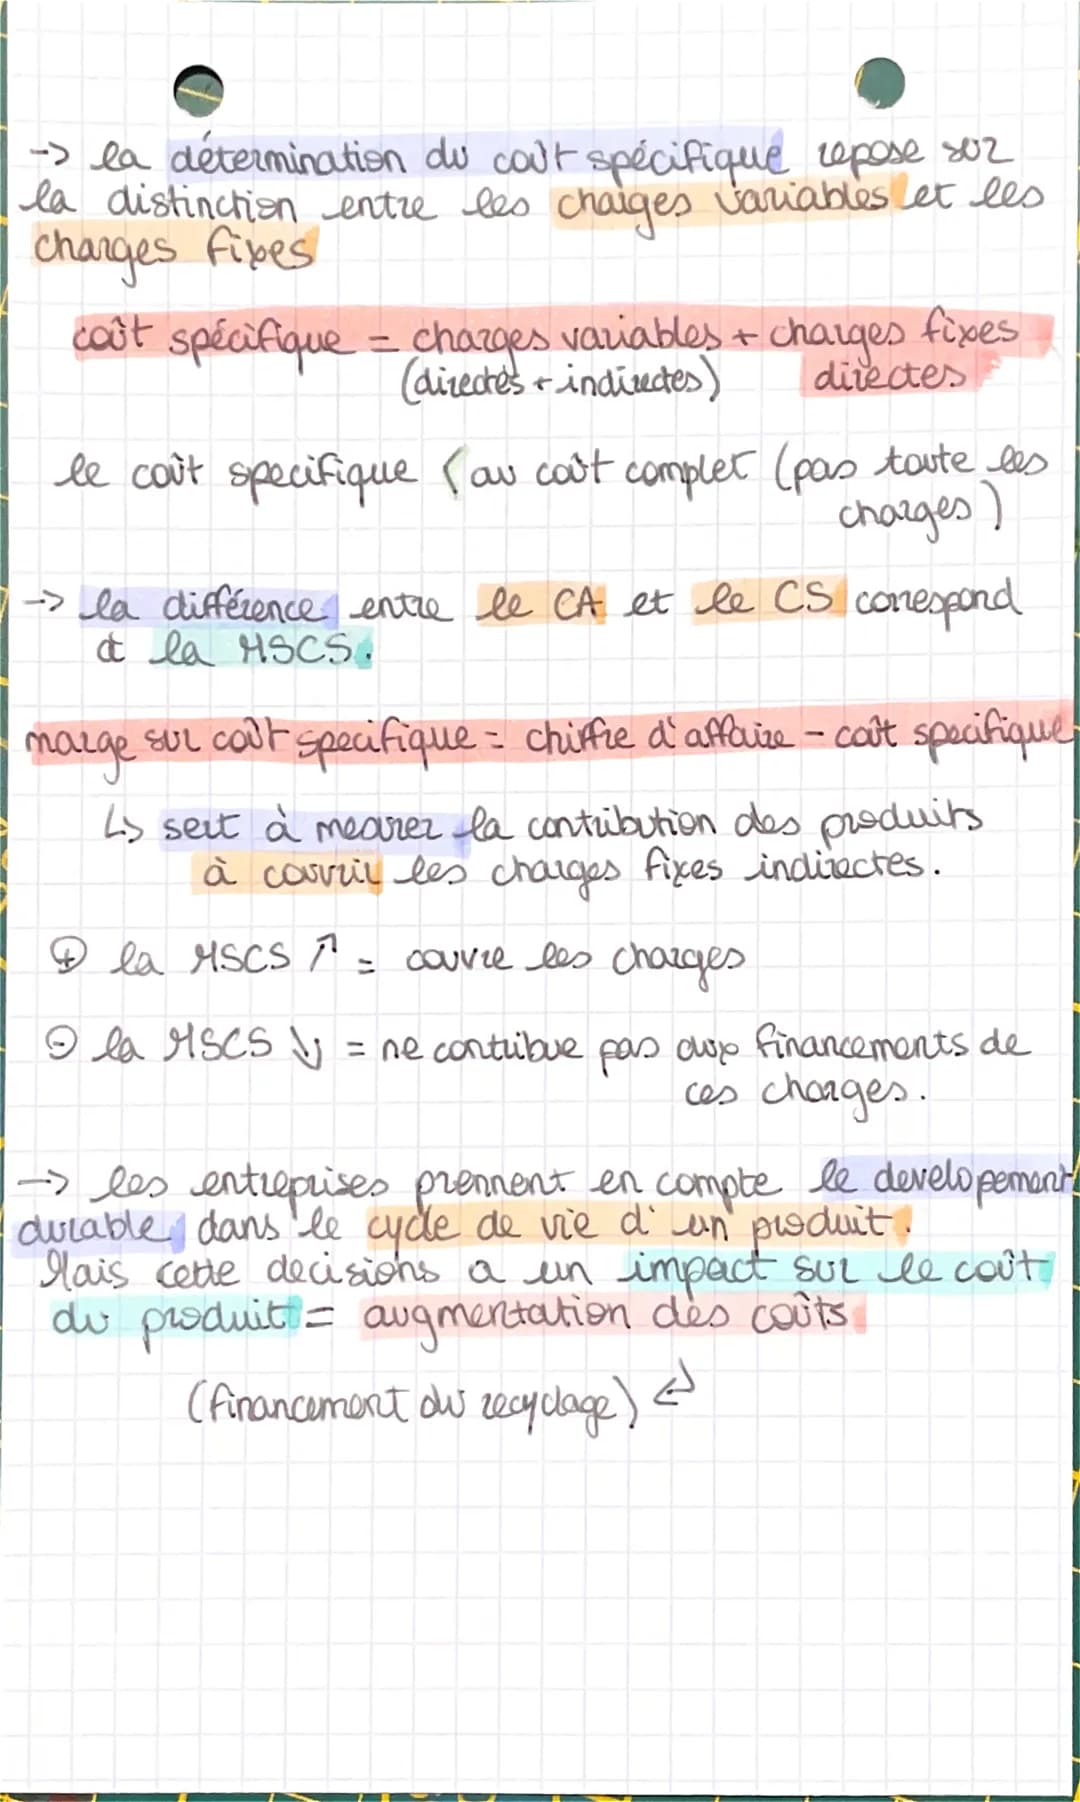 -> la détermination du coût spécifique repose sur
la distinction entre les charges variables et les
charges fixes
coût spécifique = charges variables + charges fixes
(directes + indirectes) directes
le coût specifique < au coût complet (pas toute les
charges)
-> la différence entre le CA et le CS correspond
à la MSCS.
marge sur coût specifique = chiffre d'affaire - coût specifique
↳ sert à mesurer la contribution des produits
à couvrir les charges fixes indirectes.
⊕ la MSCS ↗ = couvre les charges
⊖ la MSCS ↘ = ne contribue pas aux financements de
ces charges.
-> les entreprises prennent en compte le developement
durable dans le cycle de vie d'un produit.
Mais cette decisions a un impact sur le coût
du produit = augmentation des coûts
(financement du recyclage) ↵